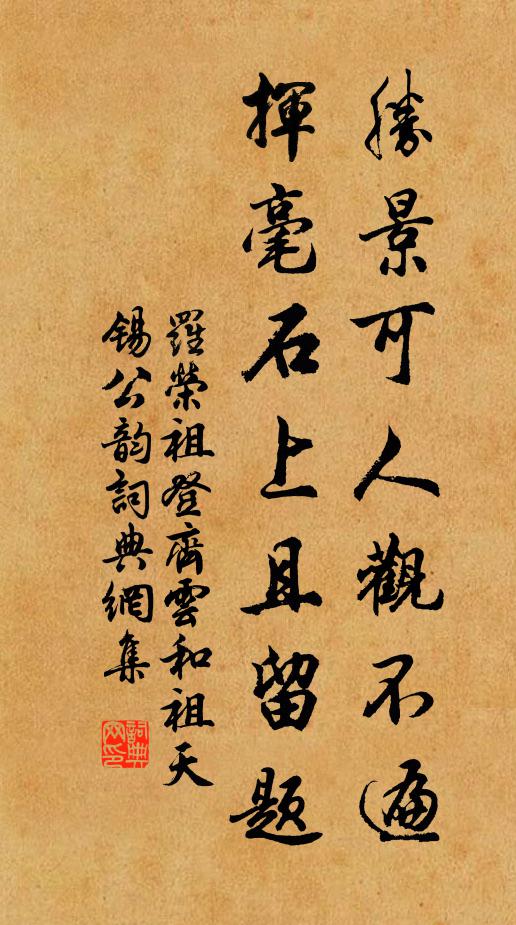 勝景可人觀不遍
揮毫石上且留題
羅榮祖登齊雲和祖天
錫公韵詞典網集
詞典
网印